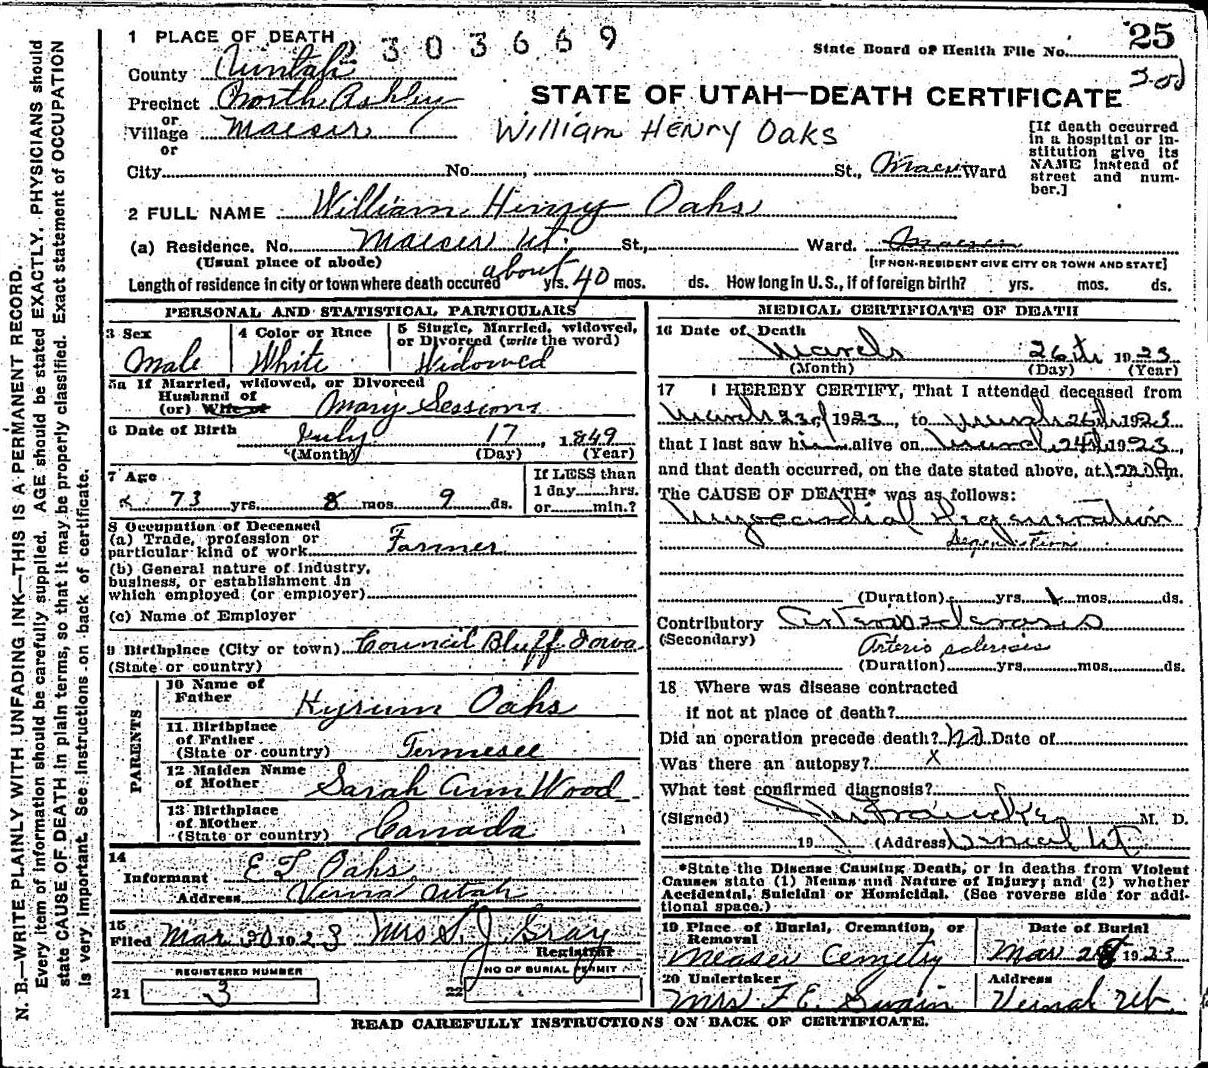 25
1 PLACE OF DEATH 2303669
State Board of Health File No.
County Uintah
Precinct North Ashley
STATE OF UTAH—DEATH CERTIFICATE
or
Village Maeser
William Henry Oaks
or
City No. St., Maeser Ward
[If death occurred
in a hospital or in-
stitution give its
NAME instead of
street and num-
ber.]
2 FULL NAME William Henry Oaks
(a) Residence. No. Maeser Ut. St., Ward. Maeser
(Usual place of abode) [IF NON-RESIDENT GIVE CITY OR TOWN AND STATE]
Length of residence in city or town where death occured about yrs. 40 mos. ds. How long in U.S., if of foreign birth? yrs. mos. ds.
PERSONAL AND STATISTICAL PARTICULARS
3 Sex
Male
4 Color or Race
White
5 Single, Married, widowed,
or Divorced (write the word)
Widowed
5a If Married, widowed, or Divorced
Husband of
(or) Wife of Mary Sessions
6 Date of Birth July 17, 1849
(Month) (Day) (Year)
7 Age
73 yrs. 8 mos. 9 ds.
If LESS than
1 day hrs.
or min.?
8 Occupation of Deceased
(a) Trade, profession or
particular kind of work Farmer
(b) General nature of industry,
business, or establishment in
which employed (or employer)
(c) Name of Employer
9 Birthplace (City or town) Council Bluff Iowa
(State or country)
PARENTS
10 Name of
Father Hyrum Oaks
11 Birthplace
of Father
(State or country) Tennesee
12 Maiden Name
of Mother Sarah Ann Wood
13 Birthplace
of Mother
(State or country) Canada
14
Informant E T Oaks
Address Vernal Utah
15
Filed Mar 30 1923 Mrs S. J Gray
Registrar
REGISTERED NUMBER
21 3
NO OF BURIAL PERMIT
22
MEDICAL CERTIFICATE OF DEATH
16 Date of Death
March 26th 1923
(Month) (Day) (Year)
17 I HEREBY CERTIFY, That I attended deceased from
March 23rd 1923, to March 26th 1923
that I last saw him alive on March 24th 1923,
and that death occurred, on the date stated above, at m.
The CAUSE OF DEATH* was as follows:
Myocardial Degeneration
Degeneration
(Duration) yrs. 1 mos. ds.
Contributory Arteriosclerosis
(Secondary) Arterio sclerosis
(Duration) yrs. mos. ds.
18 Where was disease contracted
if not at place of death?
Did an operation precede death? No Date of
Was there an autopsy? X
What test confirmed diagnosis?
(Signed) M. D.
19 (Address) Vernal Ut
*State the Disease Causing Death, or in deaths from Violent
Causes state (1) Means and Nature of Injury; and (2) whether
Accidental, Suicidal or Homicidal. (See reverse side for addi-
tional space.)
19 Place of Burial, Cremation, or
Removal
Measer Cemetry
Date of Burial
Mar 28 1923
20 Undertaker
Mrs F. E. Swain
Address
Vernal Ut.
READ CAREFULLY INSTRUCTIONS ON BACK OF CERTIFICATE.
N. B.—WRITE PLAINLY WITH UNFADING INK—THIS IS A PERMANENT RECORD.
Every item of information should be carefully supplied. AGE should be stated EXACTLY. PHYSICIANS should
state CAUSE OF DEATH in plain terms, so that it may be properly classified. Exact statement of OCCUPATION
is very important. See instructions on back of certificate.